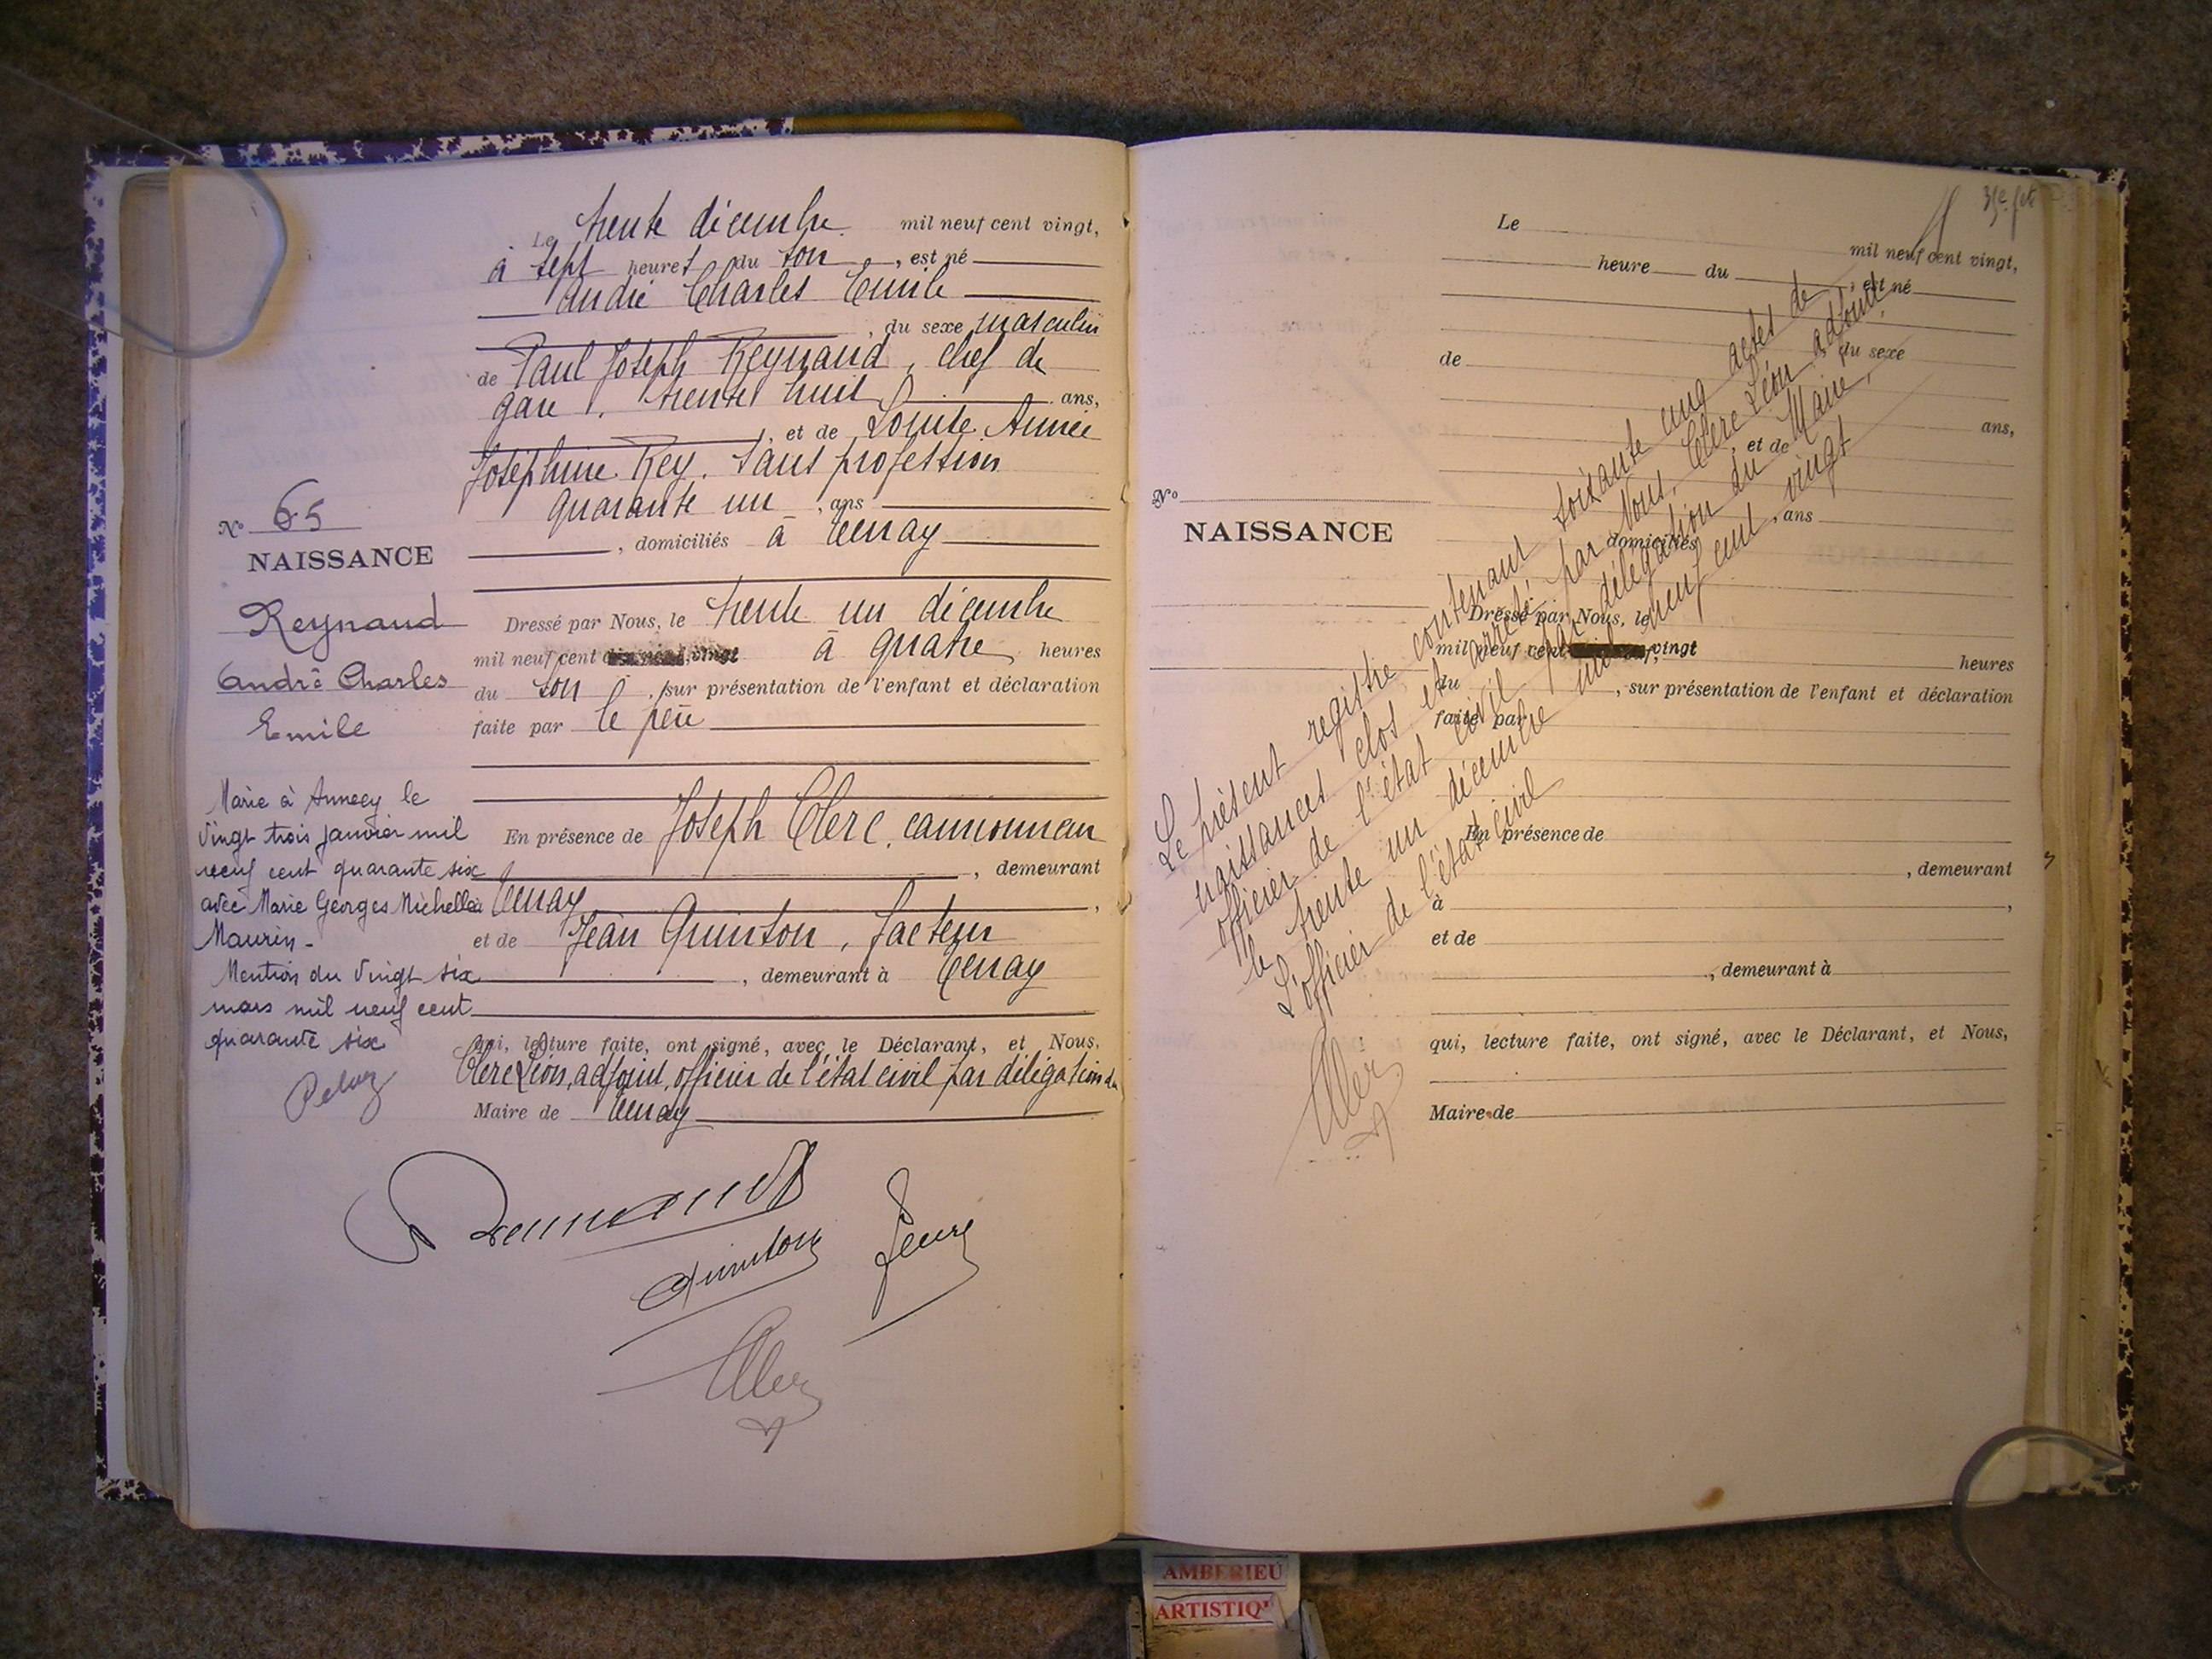 Le trente décembre mil neuf cent vingt,
à sept heures du soir, est né
André Charles Emile
, du sexe masculin
de Paul Joseph Reynaud, chef de
gare, trente huit ans,
, et de Louise Aimée
Joséphine Rey, sans profession
quarante un, ans
, domiciliés à Tenay
N° 65
NAISSANCE
Reynaud
André Charles
Emile
Dressé par Nous, le trente un décembre
mil neuf cent vingt à quatre heures
du soir, sur présentation de l'enfant et déclaration
faite par le père
En présence de Joseph Clerc, camionneur
, demeurant
à Tenay,
et de Jean Quinson, facteur
, demeurant à Tenay
qui, lecture faite, ont signé, avec le Déclarant, et Nous,
Clerc Léon, adjoint, officier de l'état civil par délégation du
Maire de Tenay
Marié à Annecy le
vingt trois janvier mil
neuf cent quarante six
avec Marie Georges Michelle
Maurin -
Mention du vingt six
mars mil neuf cent
quarante six
Reynaud
Quinson
Clerc
Le mil neuf cent vingt,
heure du , est né
, du sexe
de
ans,
, et de
, ans
, domiciliés
N°
NAISSANCE
Dressé par Nous, le
mil neuf cent vingt heures
du , sur présentation de l'enfant et déclaration
faite par
En présence de
, demeurant
à ,
et de
, demeurant à
qui, lecture faite, ont signé, avec le Déclarant, et Nous,
Maire de
Le présent registre contenant soixante cinq actes de
naissances clos et arrêté par Nous, Clerc Léon adjoint,
officier de l'état civil par délégation du Maire,
le trente un décembre mil neuf cent vingt
L'officier de l'état civil
Clerc
AMBERIEU
ARTISTIQ